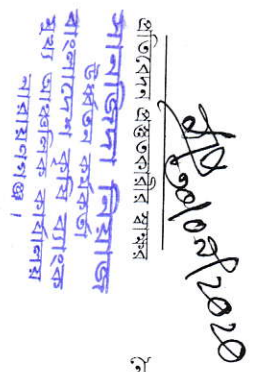 ৩০/০৯/2020
প্রতিবেদন প্রস্তুতকারীর স্বাক্ষর
সানজিদা নিয়াজ
উর্ধ্বতন কর্মকর্তা
বাংলাদেশ কৃষি ব্যাংক
মুখ্য আঞ্চলিক কার্যালয়
নারায়ণগঞ্জ।